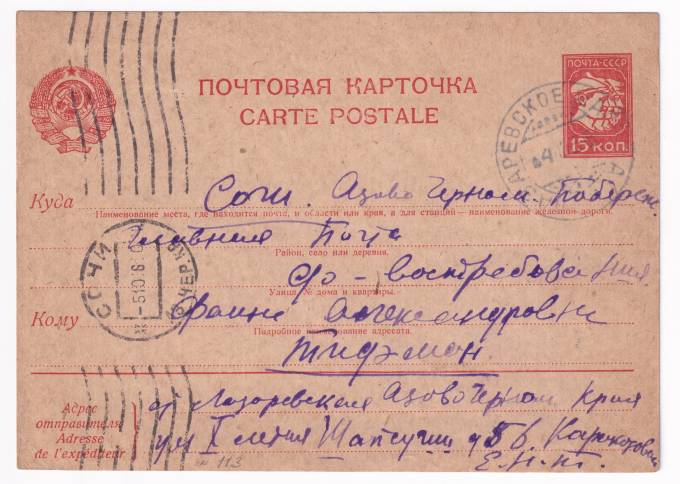 ПОЧТА-СССР
15 КОП.
ПОЧТОВАЯ КАРТОЧКА
CARTE POSTALE
Куда Сочи. Азово Черном. Побереж.
Наименование места, где находится почта, и области или края, а для станций—наименование железной дороги.
Главная Почта
Район, село или деревня.
до - востребования.
Улица, № дома и квартиры.
Кому Фаине Александровне
Подробное наименование адресата.
СОЧИ
Адрес отправителя
Adresse de l'expéditeur
ст Лазаревская Азово Черном Края
ул X летия Шапсугии д 5 в.
№ 113